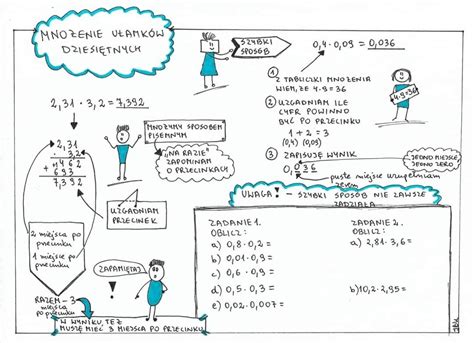 MNOŻENIE UŁAMKÓW
DZIESIĘTNYCH
2,31 · 3,2 = 7,392
2,31
· 3,2
462
+ 693
7,392
2 miejsca po
przecinku
1 miejsce po
przecinku
RAZEM - 3
miejsca
po przecinku
W WYNIKU TEŻ
MUSZĘ MIEĆ 3 MIEJSCA PO PRZECINKU
MNOŻYMY SPOSOBEM
PISEMNYM
"NA RAZIE"
ZAPOMINAM
O PRZECINKACH
UZGADNIAM
PRZECINEK
ZAPAMIĘTAJ
SZYBKI
SPOSÓB
0,4 · 0,09 = 0,036
1 Z TABLICZKI MNOŻENIA
WIEM, ŻE 4·9=36
4·9=36
2 UZGADNIAM ILE
CYFR POWINNO
BYĆ PO PRZECINKU
1 + 2 = 3
(0,4) (0,09)
3 ZAPISUJĘ WYNIK
0,036
JEDNO MIEJSCE,
JEDNO ZERO
puste miejsce uzupełniam
zerem
UWAGA! - SZYBKI SPOSÓB NIE ZAWSZE
ZADZIAŁA
ZADANIE 1.
OBLICZ:
a) 0,8 · 0,2 =
b) 0,01 · 0,9 =
c) 0,6 · 0,9 =
d) 0,5 · 0,03 =
e) 0,02 · 0,007 =
ZADANIE 2.
OBLICZ:
a) 2,81 · 3,6 =
b) 10,2 · 2,95 =